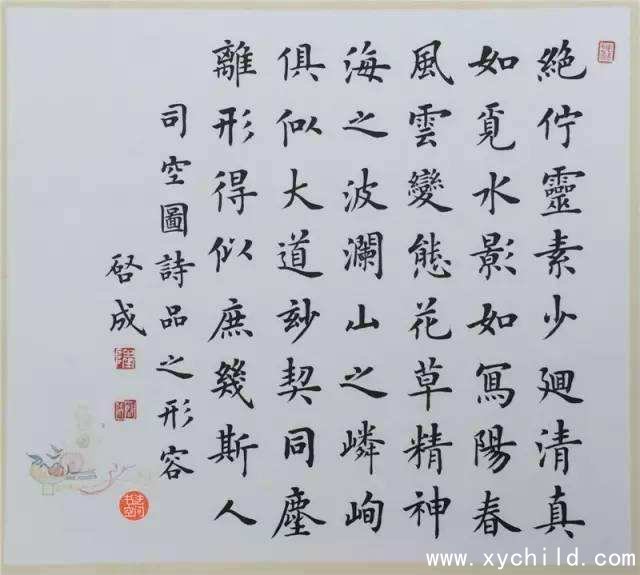 絕佇靈素少迴清真
如覓水影如寫陽春
風雲變態花草精神
海之波瀾山之嶙峋
俱似大道妙契同塵
離形得似庶幾斯人
司空圖詩品之形容
啓成
www.xychild.com